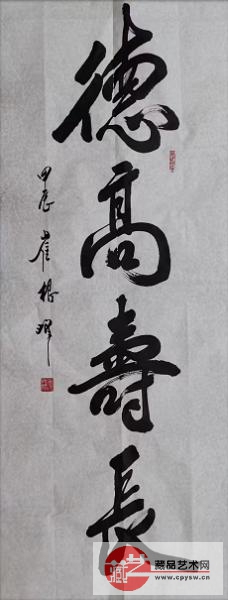 德高壽長
甲辰 崔根环
藏品艺术网
www.cpysw.cn